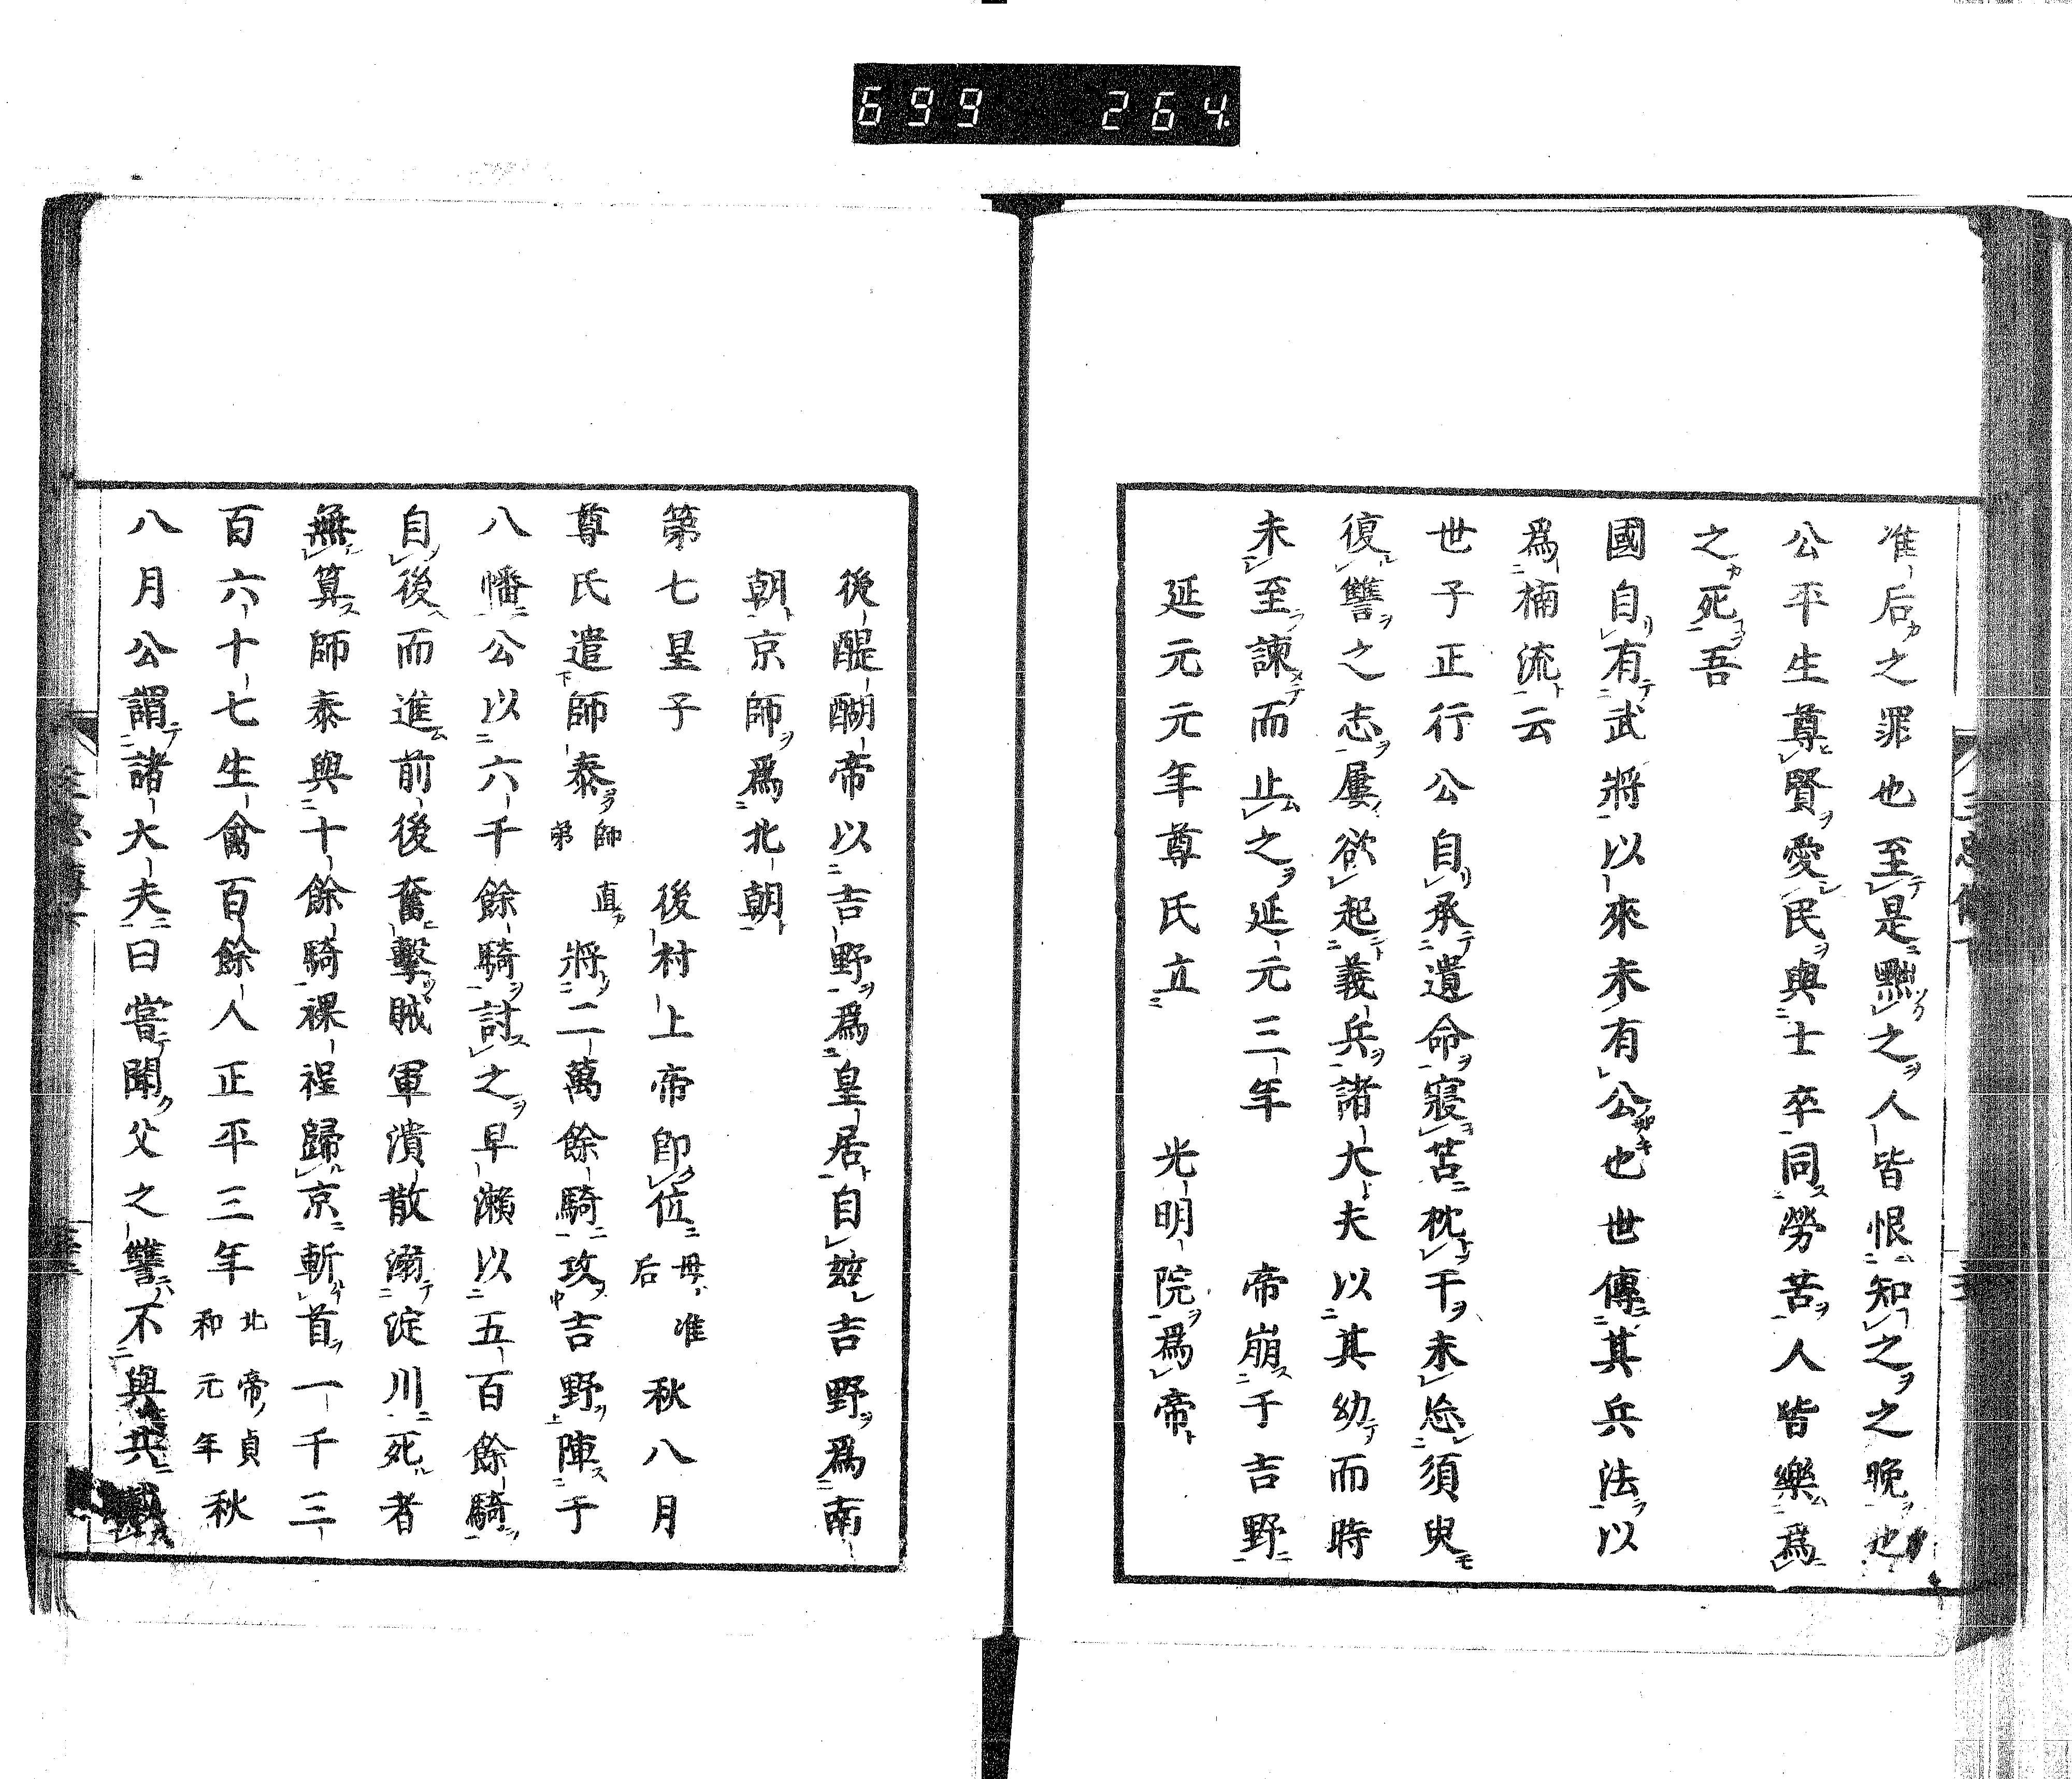 699 264
准后之罪也至是黜之人皆恨知之之晩也
公平生尊賢愛民與士卒同勞苦人皆樂爲
之死吾
國自有武將以來未有公也世傳其兵法以
爲楠流云
世子正行公自承遺命寢苫枕干未忘須臾
復讐之志屢欲起義兵諸大夫以其幼而時
未至諫而止之延元三年 帝崩于吉野
延元元年尊氏立 光明院爲帝
後醍醐帝以吉野爲皇居自玆吉野爲南
朝京師爲北朝
第七皇子 後村上帝卽位母准后秋八月
尊氏遣師泰師直弟將二萬餘騎攻吉野陣于
八幡公以六千餘騎討之早瀬以五百餘騎
自後而進前後奮擊賊軍潰散溺淀川死者
無算師泰與十餘騎裸裎歸京斬首一千三
百六十七生禽百餘人正平三年北帝貞和元年秋
八月公謂諸大夫曰嘗聞父之讐不與共